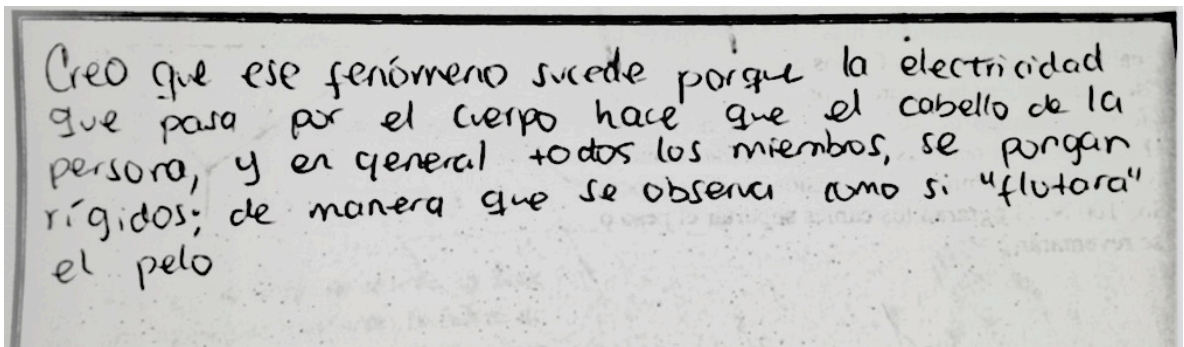 Creo que ese fenómeno sucede porque la electricidad
que pasa por el cuerpo hace que el cabello de la
persona, y en general todos los miembros, se pongan
rígidos; de manera que se observa como si "flotara"
el pelo